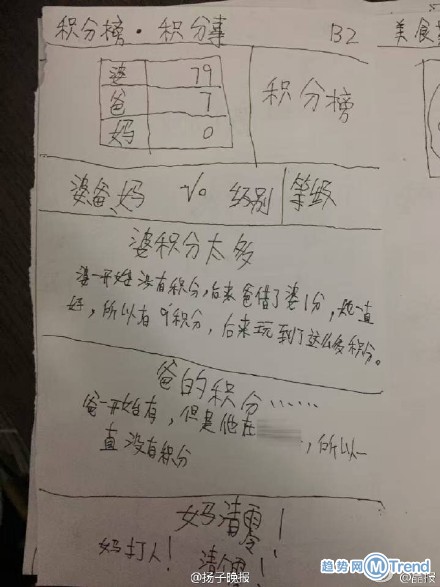 积分榜·积分事 B2
美食
婆 79
爸 7
妈 0
积分榜
婆、爸、妈 级别 等级
婆积分太多
婆一开始没有积分,后来爸借了婆1分,她一直
好,所以有9积分,后来玩到了这么多积分。
爸的积分……
爸一开始有,但是他在 ,所以一
直没有积分
妈清零!
妈打人! 清零!
@扬子晚报
趋势网 Trend